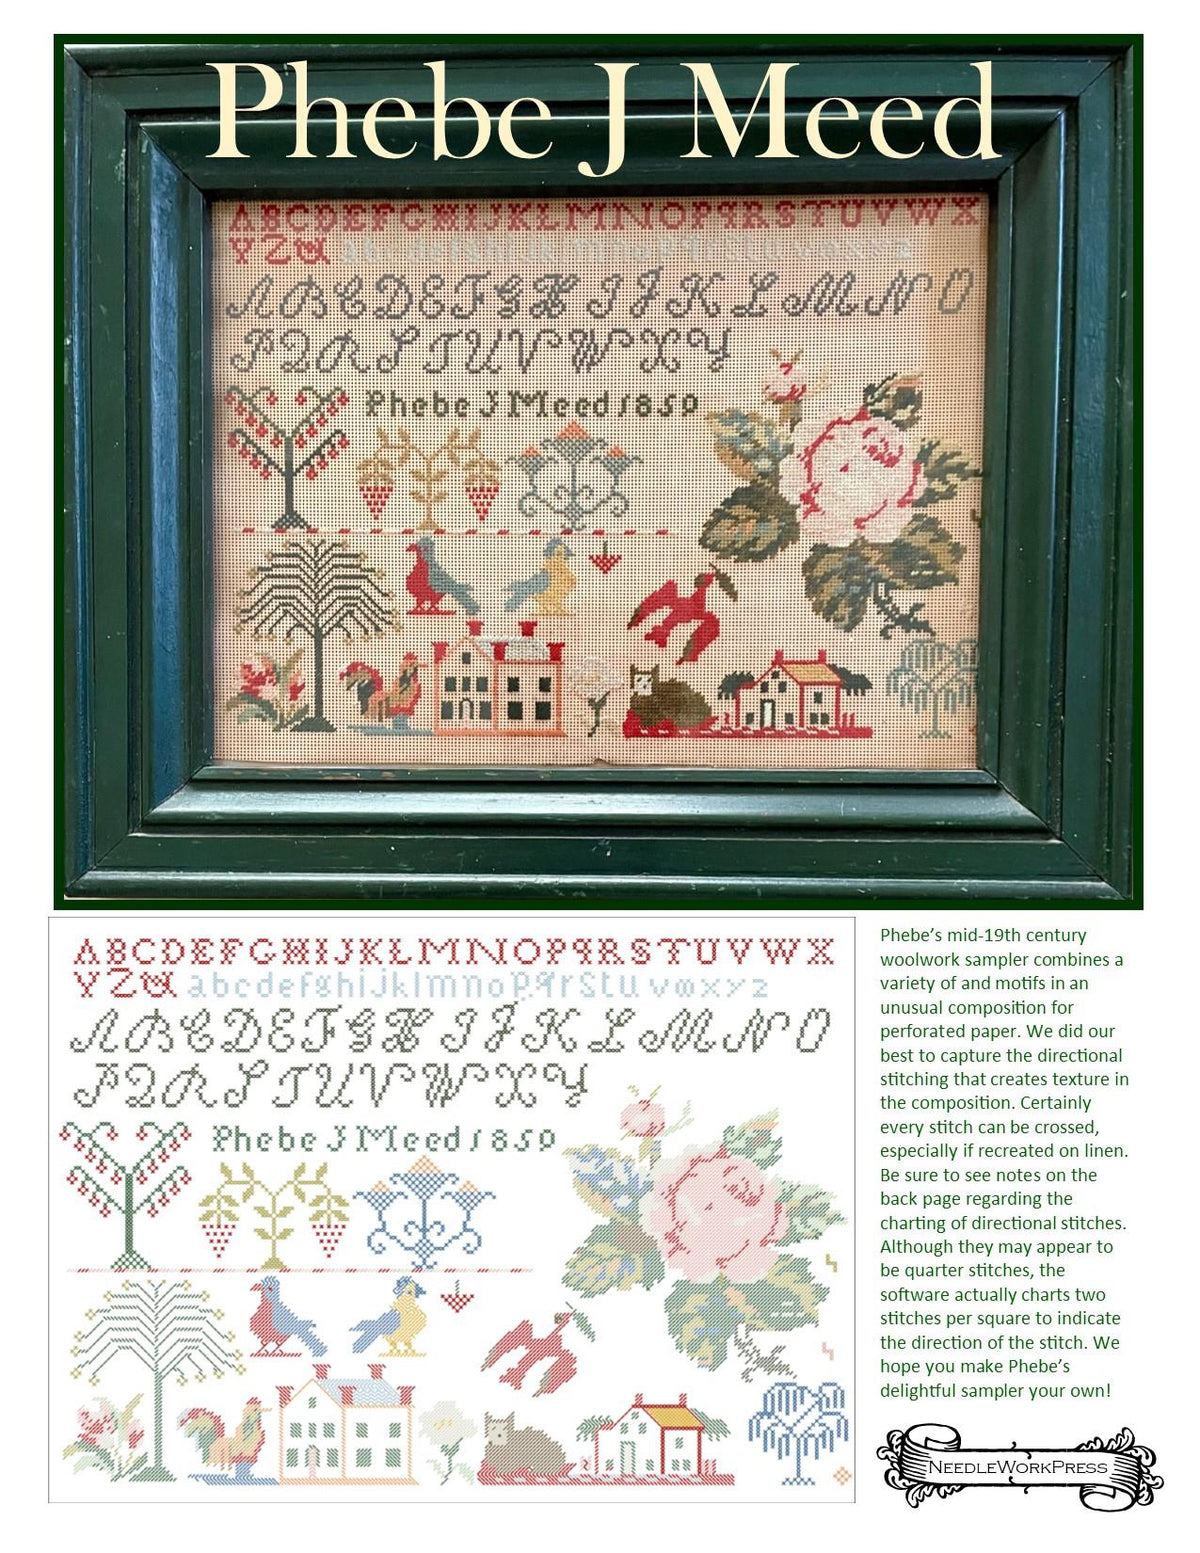 Phebe J Meed
ABCDEFGHIJKLMNOPQRSTUVWX
YZ& abcdefghijk mnopqrstu vwxyz
ABCDEFGHIJKLMNO
PQRSTUVWXY
Phebe J Meed 1850
ABCDEFGHIJKLMNOPQRSTUVWX
YZ& abcdefghijklmnopqrstu vwxyz
ABCDEFGHIJKLMNO
PQRSTUVWXY
Phebe J Meed 1850
Phebe’s mid-19th century
woolwork sampler combines a
variety of and motifs in an
unusual composition for
perforated paper. We did our
best to capture the directional
stitching that creates texture in
the composition. Certainly
every stitch can be crossed,
especially if recreated on linen.
Be sure to see notes on the
back page regarding the
charting of directional stitches.
Although they may appear to
be quarter stitches, the
software actually charts two
stitches per square to indicate
the direction of the stitch. We
hope you make Phebe’s
delightful sampler your own!
NEEDLEWORKPRESS